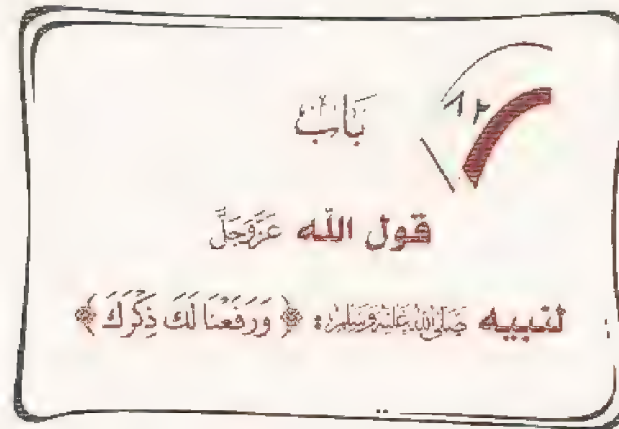 ٩٢
بَابُ
قول الله عَزَّوَجَلَّ
لنبيه صَلَّى اللهُ عَلَيْهِ وَسَلَّمَ: ﴿ وَرَفَعْنَا لَكَ ذِكْرَكَ ﴾